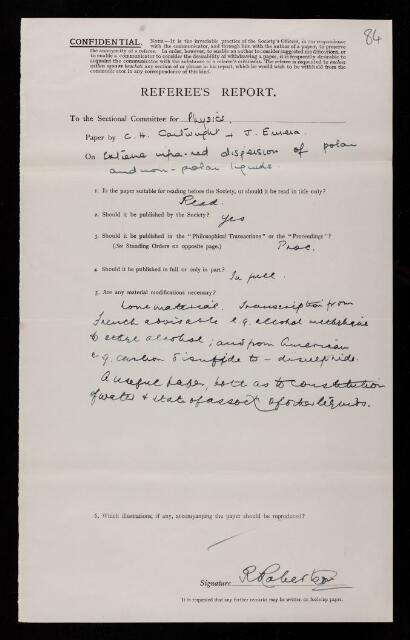 84
CONFIDENTIAL. NOTE.—It is the invariable practice of the Society's Officers, in correspondence
with the communicator, and through him with the author of a paper, to preserve
the anonymity of a referee. In order, however, to enable an author to consider suggested modifications, or
to enable a communicator to consider the desirability of withdrawing a paper, it is frequently desirable to
acquaint the communicator with the substance of a referee's criticisms. The referee is requested to enclose
within square brackets any section of or phrase in his report, which he would wish to be withheld from the
communicator in any correspondence of this kind.
REFEREE'S REPORT.
To the Sectional Committee for Physics.
Paper by C. H. Cartwright & J. Errera
On Extreme infra-red dispersion of polar
and non-polar liquids.
1. Is the paper suitable for reading before the Society, or should it be read in title only?
Read.
2. Should it be published by the Society? yes
3. Should it be published in the "Philosophical Transactions" or the "Proceedings"?
(See Standing Orders on opposite page.) Proc.
4. Should it be published in full or only in part?
In full.
5. Are any material modifications necessary?
material. Transcription from
French advisable e.g. alcohol
to ethyl alcohol; and from American
e.g. carbon disulfide to – disulphide.
A useful paper, both as to constitution
of water & state of assocn of other liquids.
6. Which illustrations, if any, accompanying the paper should be reproduced?
Signature R Robertson
It is requested that any further remarks may be written on foolscap paper.